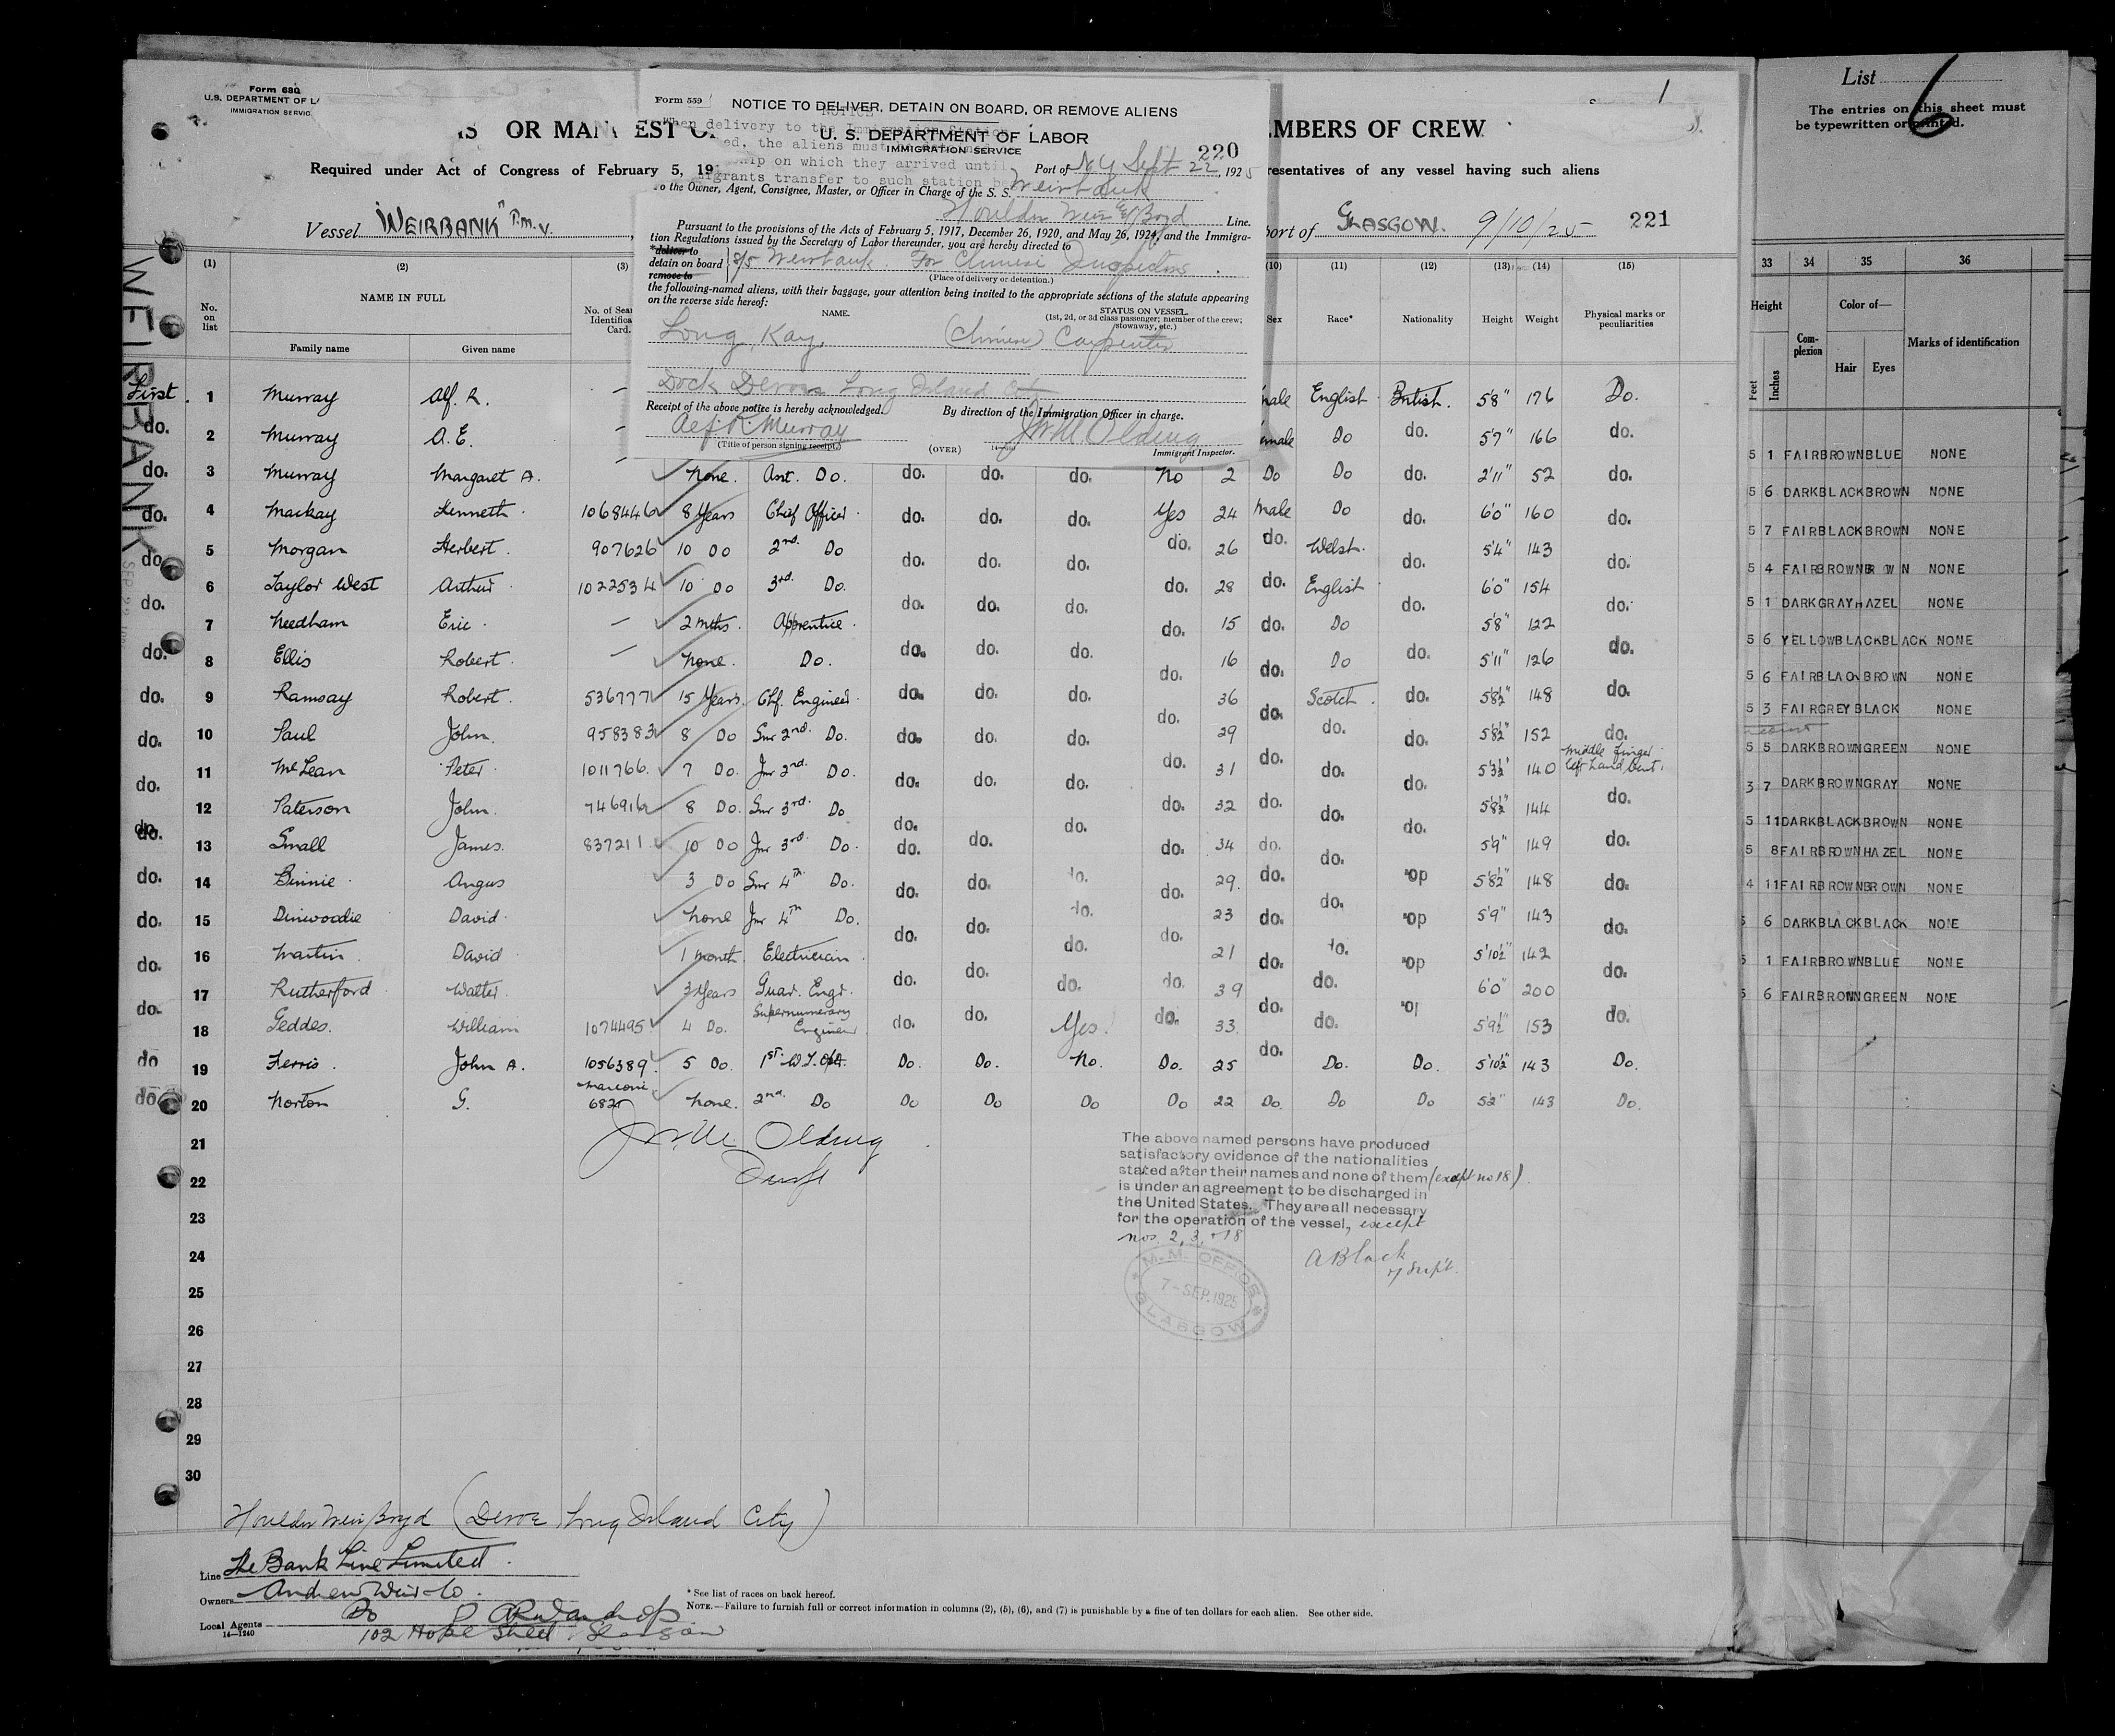 Form 680
U.S. DEPARTMENT OF LA
IMMIGRATION SERVIC
IS OR MANI EST O
MBERS OF CREW
1
Required under Act of Congress of February 5, 19
resentatives of any vessel having such aliens
Vessel "WEIRBANK" T.m.v.
port of GLASGOW. 9/10/25 221
Form 559
NOTICE TO DELIVER, DETAIN ON BOARD, OR REMOVE ALIENS
NOTICE
When delivery to the Immigration Station
U. S. DEPARTMENT OF LABOR
ed, the aliens must
IMMIGRATION SERVICE
220
ship on which they arrived until
Port of N.Y. Sept 22, 1925
migrants transfer to such station b
To the Owner, Agent, Consignee, Master, or Officer in Charge of the S. S. Weirbank
Houlder Weir & Boyd Line.
Pursuant to the provisions of the Acts of February 5, 1917, December 26, 1920, and May 26, 1924, and the Immigra-
tion Regulations issued by the Secretary of Labor thereunder, you are hereby directed to
*deliver to
detain on board S/S Weirbank. For Chinese Inspectors.
remove to
(Place of delivery or detention.)
the following-named aliens, with their baggage, your attention being invited to the appropriate sections of the statute appearing
on the reverse side hereof:
NAME. STATUS ON VESSEL.
(1st, 2d, or 3d class passenger; member of the crew;
stowaway, etc.)
Long, Kay, (Chinese) Carpenter
Dock Devoe Long Island City
Receipt of the above notice is hereby acknowledged. By direction of the Immigration Officer in charge.
Alf. R. Murray JWM. Olding
(Title of person signing receipt.) (OVER) Immigrant Inspector.
WEIRBANK
(1) (2) (3) (10) (11) (12) (13) (14) (15)
No. on list NAME IN FULL No. of Sea Identifica Card. Sex Race* Nationality Height Weight Physical marks or peculiarities
Family name Given name
First. 1 Murray Alf. R. — male English British. 5'8" 176 Do.
do. 2 Murray A. E. — female Do do. 5'7" 166 do.
do. 3 Murray Margaret A. none. Ant. Do. do. do. do. No 2 Do Do do. 2'11" 52 do.
do. 4 Mackay Kenneth 1068446 8 Years Chief Officer do. do. do. Yes 24 male Do do. 6'0" 160 do.
do. 5 Morgan Herbert 907626 10 Do 2nd. Do do. do. do. do. 26 do. Welsh. do. 5'4" 143 do.
do. 6 Taylor West Arthur 1022534 10 Do 3rd. Do. do. do. do. do. 28 do. English do. 6'0" 154 do.
do. 7 Needham Eric — 2 mths. Apprentice do. 15 do. Do 5'8" 122
do. 8 Ellis Robert — none. Do. do. do. do. do. 16 do. Do do. 5'11" 126 do.
do. 9 Ramsay Robert 536777 15 Years. Chf. Engineer do. do. do. 36 Scotch. do. 5'8½" 148 do.
do. 10 Paul John 958383 8 Do Snr 2nd. Do. do. do. do. do. 29 do. do. do. 5'8½" 152 do.
do. 11 McLean Peter 1011766 7 Do. Jnr 2nd. Do. do. do. do. do. 31 do. do. do. 5'3½" 140 Middle finger left hand bent.
do. 12 Paterson John 746916 8 Do. Snr 3rd. Do do. 32 do. do. 5'8½" 144 do.
do. 13 Small James. 837211 10 Do Jnr 3rd. Do. do. do. do. do. 34 do. do. do. 5'9" 149 do.
do. 14 Binnie Angus 3 Do Snr 4th. Do. do. do. do. do. 29. do. do 5'8½" 148 do.
do. 15 Dinwoodie David none Jnr 4th Do. do. do. do. 23 do. do. do 5'9" 143 do.
do. 16 Martin David 1 month. Electrician do. do. do. do. 21 do. do. do 5'10½" 142
do. 17 Rutherford Walter 3 Years Guar. Engr. do. do. do. do. 39 do. do. 6'0" 200 do.
18 Geddes. William 1074495 4 Do. Supernumerary Engineer do. do. Yes. do. 33. do. do. 5'9½" 153 do.
do 19 Ferris. John A. 1056389 5 Do. 1st. W.T. Optr. Do. Do. No. Do. 25 do. Do. Do. 5'10½" 143 Do.
do 20 Norton G. Marconi 682 none. 2nd. Do Do Do Do Do 22 Do. Do Do 5'2" 143 Do.
21
22
23
24
25
26
27
28
29
30
JWM. Olding
Insp
The above named persons have produced
satisfactory evidence of the nationalities
stated after their names and none of them (except no 18)
is under an agreement to be discharged in
the United States. They are all necessary
for the operation of the vessel, except
nos. 2, 3, & 18
A Black
Supt.
M.M. OFFICE
7-SEP.1925
GLASGOW
Houlder Weir Boyd (Devoe Long Island City)
Line The Bank Line Limited
Owners Andrew Weir & Co.
Local Agents Do
14—1240
102 Hope Street Glasgow
* See list of races on back hereof.
NOTE.—Failure to furnish full or correct information in columns (2), (5), (6), and (7) is punishable by a fine of ten dollars for each alien. See other side.
List 6
The entries on this sheet must
be typewritten or printed.
33 34 35 36
Height Complexion Color of— Marks of identification
Feet Inches Hair Eyes
5 1 FAIR BROWN BLUE NONE
5 6 DARK BLACK BROWN NONE
5 7 FAIR BLACK BROWN NONE
5 4 FAIR BROWN BROWN NONE
5 1 DARK GRAY HAZEL NONE
5 6 YELLOW BLACK BLACK NONE
5 6 FAIR BLACK BROWN NONE
5 3 FAIR GREY BLACK NONE
5 5 DARK BROWN GREEN NONE
3 7 DARK BROWN GRAY NONE
5 11 DARK BLACK BROWN NONE
5 8 FAIR BROWN HAZEL NONE
4 11 FAIR BROWN BROWN NONE
5 6 DARK BLACK BLACK NONE
5 1 FAIR BROWN BLUE NONE
5 6 FAIR BROWN GREEN NONE